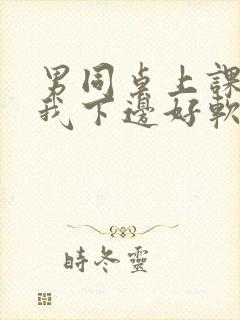 男同桌上課
我下邊好軟
時冬靈